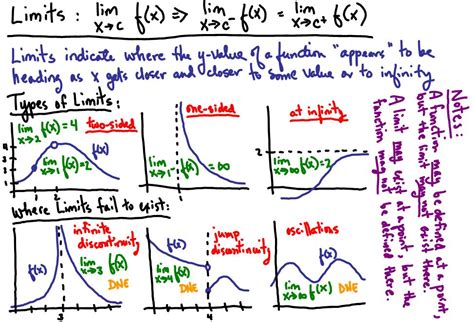 Limits: lim x→c f(x) => lim x→c⁻ f(x) = lim x→c⁺ f(x)
Limits indicate where the y-value of a function "appears" to be
heading as x gets closer and closer to some value or to infinity
Types of Limits:
two-sided
lim x→2 f(x)=4
f(x)
lim x→1 f(x)=2
4
3
2
1
1 2
one-sided
lim x→1⁻ f(x) = ∞
at infinity
2
lim x→∞ f(x)=2
Where Limits fail to exist:
infinite
discontinuity
f(x)
lim x→3 f(x)
DNE
3
jump
discontinuity
f(x)
lim x→4 f(x)
DNE
4
oscillations
f(x)
lim x→∞ f(x) DNE
Notes:
A function may be defined at a point,
but the limit may not exist there.
A limit may exist at a point, but the
function may not be defined there.